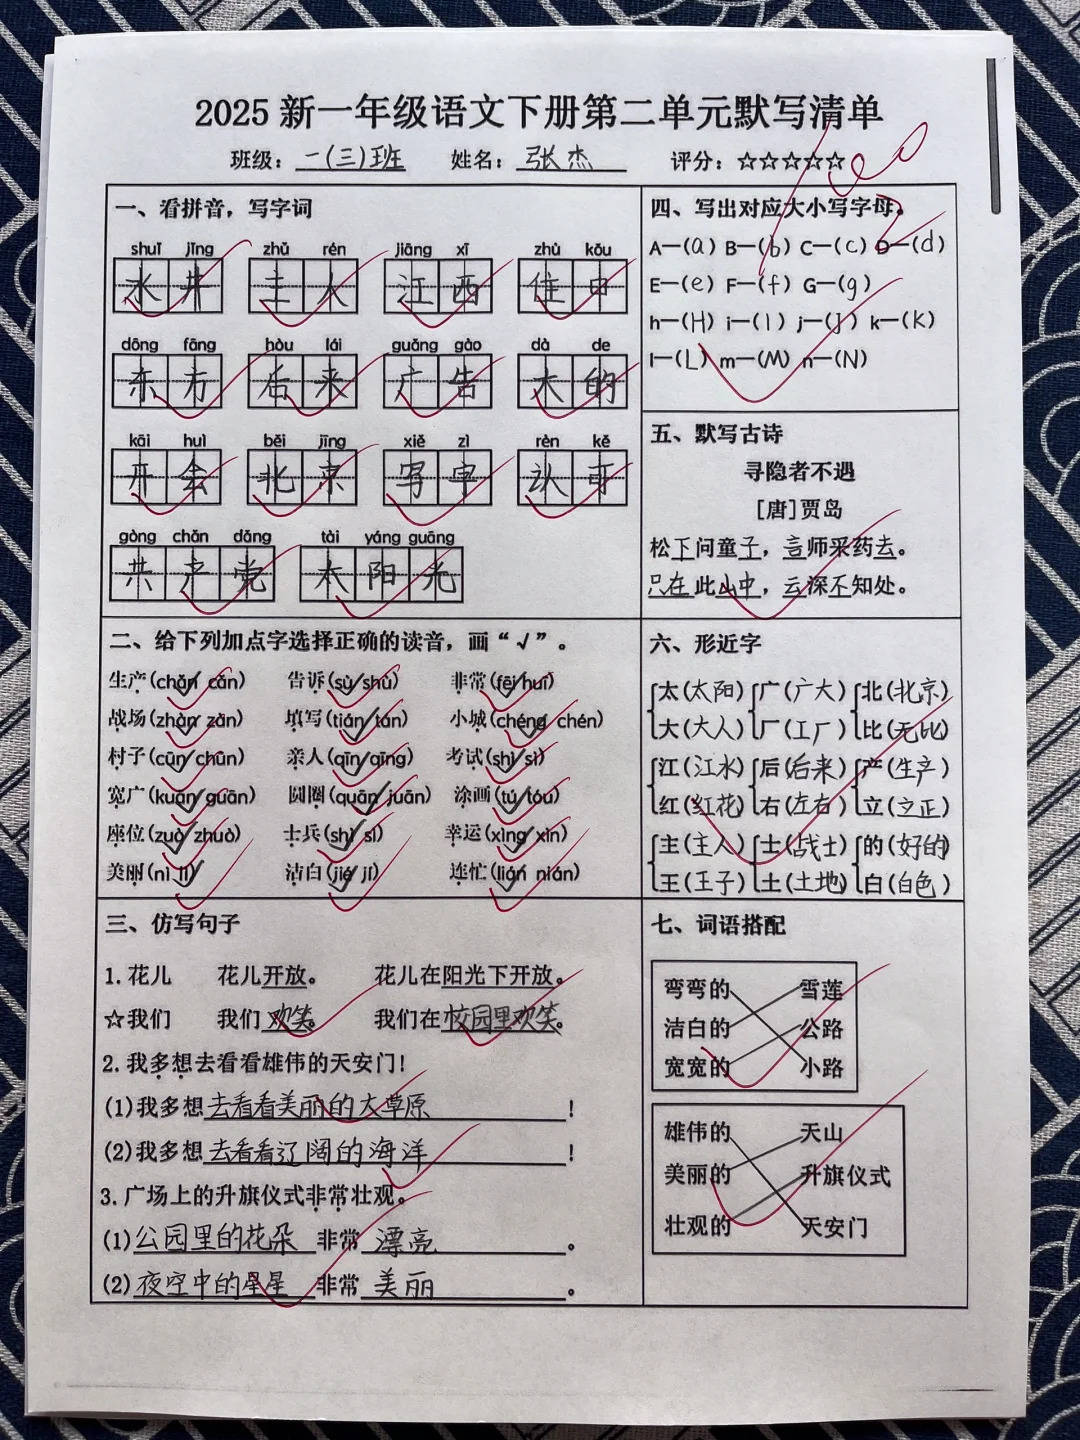 2025新一年级语文下册第二单元默写清单
班级：一(三)班 姓名：张杰 评分：☆☆☆☆☆
100
一、看拼音，写字词
shuǐ jǐng zhǔ rén jiāng xī zhù kǒu
水井 主人 江西 住口
dōng fāng hòu lái guǎng gào dà de
东方 后来 广告 大的
kāi huì běi jīng xiě zì rèn kě
开会 北京 写字 认可
gòng chǎn dǎng tài yáng guāng
共产党 太阳光
二、给下列加点字选择正确的读音，画“√”。
生产(chǎn cǎn) 告诉(sù shù) 非常(fēi huī)
战场(zhàn zàn) 填写(tián tán) 小城(chéng chén)
村子(cūn chūn) 亲人(qīn qīng) 考试(shì sì)
宽广(kuān guān) 圆圈(quān juān) 涂画(tú tóu)
座位(zuò zhuò) 士兵(shì sì) 幸运(xìng xìn)
美丽(nì lì) 洁白(jié jí) 连忙(lián nián)
三、仿写句子
1.花儿 花儿开放。 花儿在阳光下开放。
☆我们 我们欢笑。 我们在校园里欢笑。
2.我多想去看看雄伟的天安门！
(1)我多想去看看美丽的大草原！
(2)我多想去看看辽阔的海洋！
3.广场上的升旗仪式非常壮观。
(1)公园里的花朵非常漂亮。
(2)夜空中的星星非常美丽。
四、写出对应大小写字母。
A—(a) B—(b) C—(c) D—(d)
E—(e) F—(f) G—(g)
h—(H) i—(I) j—(J) k—(K)
l—(L) m—(M) n—(N)
五、默写古诗
寻隐者不遇
[唐]贾岛
松下问童子，言师采药去。
只在此山中，云深不知处。
六、形近字
太(太阳) 广(广大) 北(北京)
大(大人) 厂(工厂) 比(无比)
江(江水) 后(后来) 产(生产)
红(红花) 右(左右) 立(立正)
主(主人) 士(战士) 的(好的)
王(王子) 土(土地) 白(白色)
七、词语搭配
弯弯的 雪莲
洁白的 公路
宽宽的 小路
雄伟的 天山
美丽的 升旗仪式
壮观的 天安门